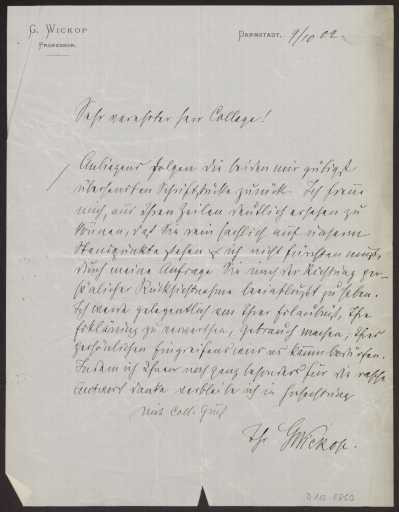 G. Wickop
Professor.
Darmstadt, 9/10 02.
Sehr verehrter Herr College!
Anliegend folgen die beiden mir gütigst
übersandten Schriftstücke zurück. Ich freue
mich, aus Ihren Zeilen deutlich ersehen zu
können, daß Sie rein sachlich auf unserem
Standpunkte stehen & ich nicht fürchten muß,
durch meine Anfrage Sie nach der Richtung per-
sönlicher Rücksichtnahme beeinflußt zu haben.
Ich werde gelegentlich von Ihrer Erlaubniß, Ihre
Erklärung zu verwerthen, Gebrauch machen, Ihres
persönlichen Eingreifens wird es kaum bedürfen.
Indem ich Ihnen noch ganz besonders für die rasche
Antwort danke verbleibe ich in Hochachtung
mit coll. Gruß
Ihr GWickop.